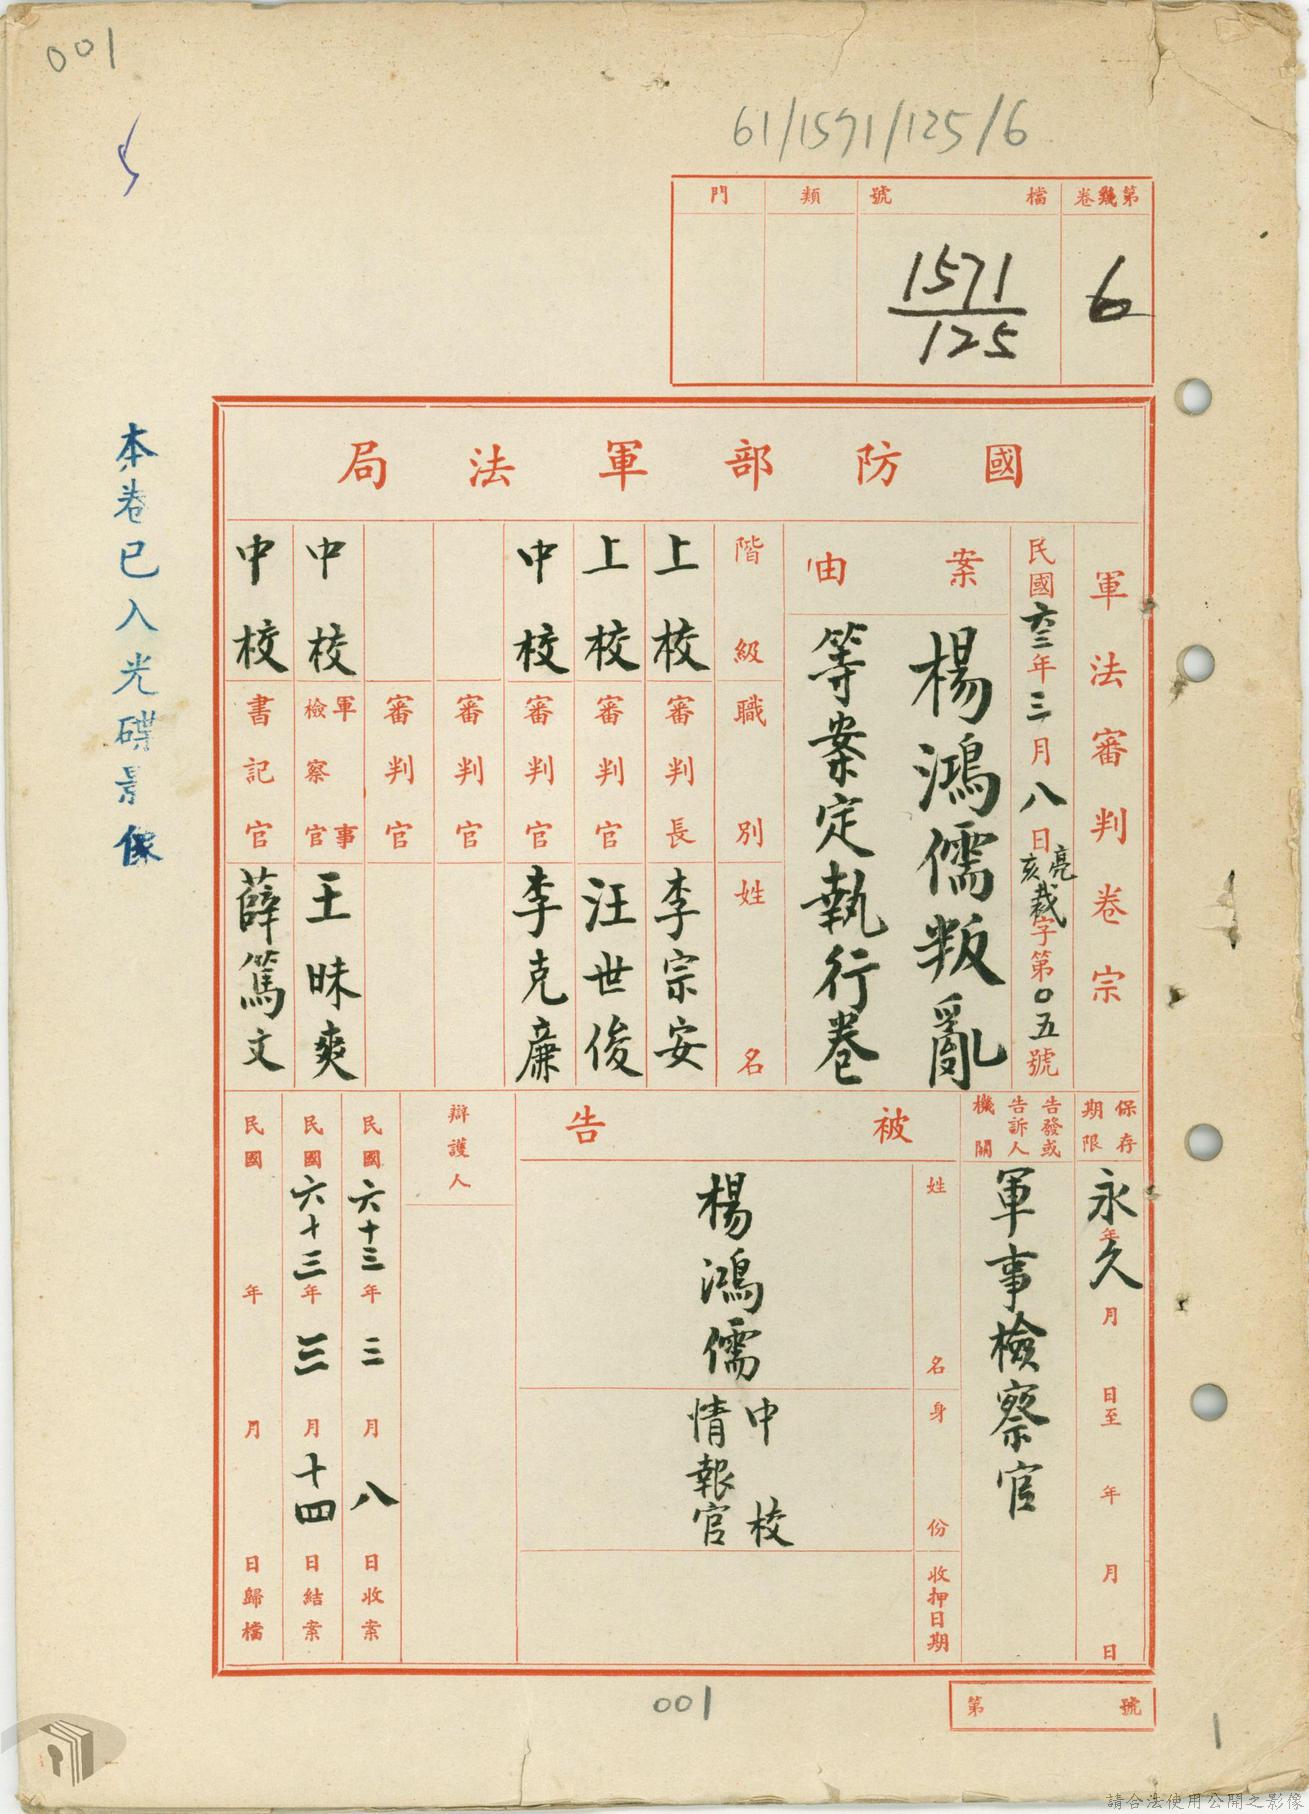 001
61/1571/125/6
第幾卷
6
檔號
1571
125
類
門
國防部軍法局
軍法審判卷宗
民國六三年三月八日亮亥裁字第〇五號
案由
楊鴻儒叛亂
等案定執行卷
階級 職別 姓名
上校 審判長 李宗安
上校 審判官 汪世俊
中校 審判官 李克廉
審判官
審判官
中校 軍事檢察官 王昧爽
中校 書記官 薛篤文
保存期限
永久
年 月 日至 年 月 日
告發或告訴人機關
軍事檢察官
被告
姓名
楊鴻儒
身份
中校
情報官
收押日期
辯護人
民國六十三年三月八日收案
民國六十三年三月十四日結案
民國 年 月 日歸檔
本卷已入光碟影像
001
第 號
1
請合法使用公開之影像